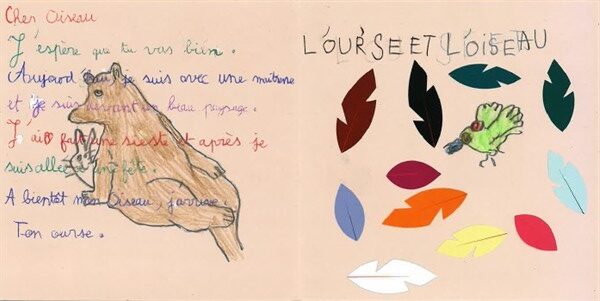 Cher Oiseau
J'espère que tu vas bien.
Aujourd'hui je suis avec une
et je suis devant un beau paysage.
J'ai fait une sieste et après je
suis allée à une fête.
A bientôt mon Oiseau, j'arrive.
Ton ourse.
L'OURSE ET L'OISEAU